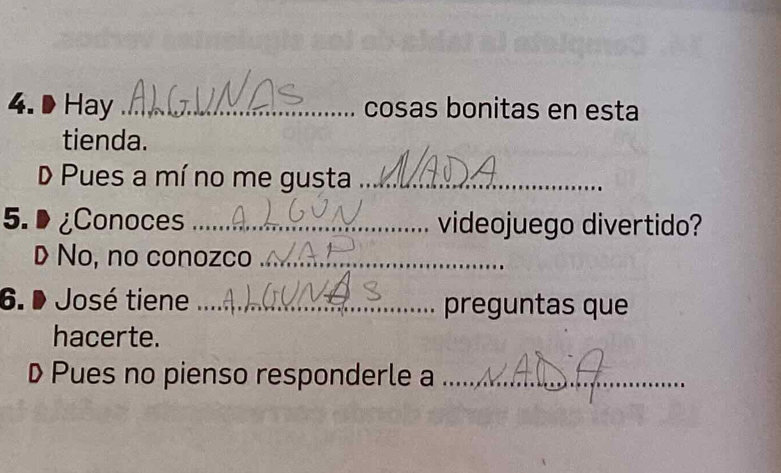 4. Hay ALGUNAS cosas bonitas en esta
tienda.
Pues a mí no me gusta NADA
5. ¿Conoces ALGÚN videojuego divertido?
No, no conozco
6. José tiene ALGUNAS preguntas que
hacerte.
Pues no pienso responderle a NADA